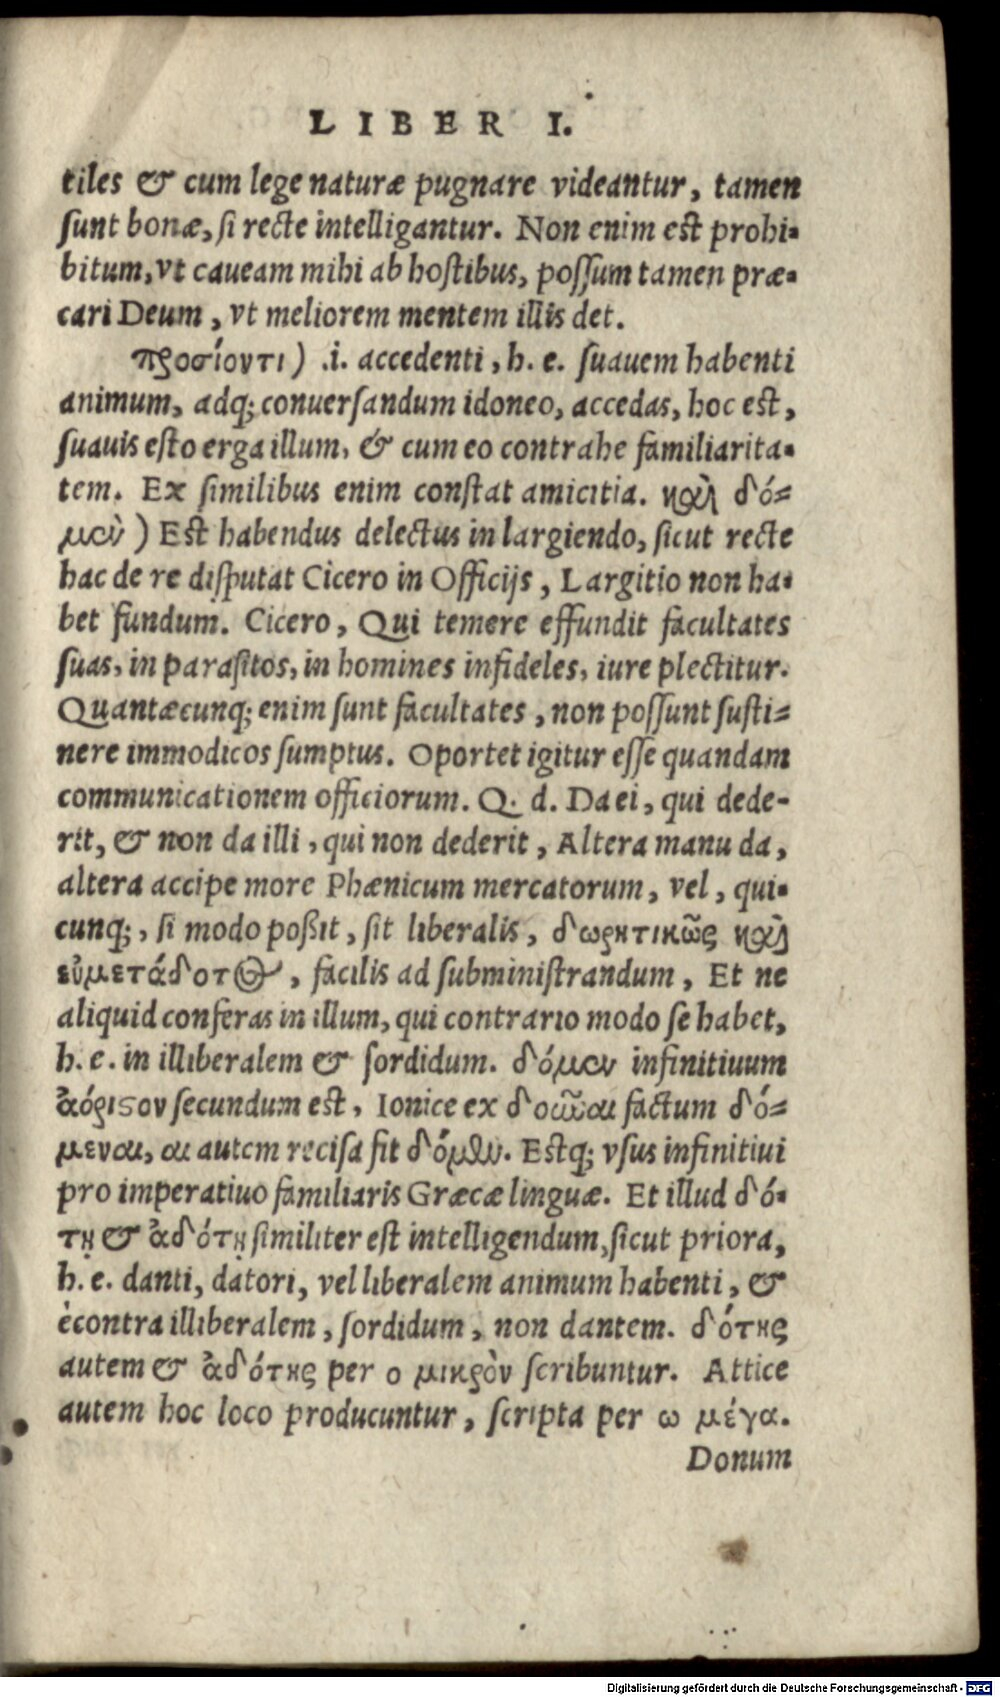 LIBER I.
tiles & cum lege naturæ pugnare videantur, tamen
sunt bonæ, si recte intelligantur. Non enim est prohi-
bitum, vt caueam mihi ab hostibus, possum tamen præ-
cari Deum, vt meliorem mentem illis det.
προσίοντι) .i. accedenti, h. e. suauem habenti
animum, adq; conuersandum idoneo, accedas, hoc est,
suauis esto erga illum, & cum eo contrahe familiarita-
tem. Ex similibus enim constat amicitia. καὶ δό-
μεν) Est habendus delectus in largiendo, sicut recte
hac de re disputat Cicero in Officijs, Largitio non ha-
bet fundum. Cicero, Qui temere effundit facultates
suas, in parasitos, in homines infideles, iure plectitur.
Quantæcunq; enim sunt facultates, non possunt susti-
nere immodicos sumptus. Oportet igitur esse quandam
communicationem officiorum. Q. d. Da ei, qui dede-
rit, & non da illi, qui non dederit, Altera manu da,
altera accipe more Phœnicum mercatorum, vel, qui-
cunq;, si modo poßit, sit liberalis, δωρητικῶς καὶ
εὐμετάδοτος, facilis ad subministrandum, Et ne
aliquid conferas in illum, qui contrario modo se habet,
h. e. in illiberalem & sordidum. δόμεν infinitiuum
ἀόριστον secundum est, Ionice ex δοῦναι factum δό-
μεναι, αι autem recisa fit δόμεν. Estq; vsus infinitiui
pro imperatiuo familiaris Græcæ linguæ. Et illud δό-
τῃ & ἀδότῃ similiter est intelligendum, sicut priora,
h. e. danti, datori, vel liberalem animum habenti, &
ècontra illiberalem, sordidum, non dantem. δότης
autem & ἀδότης per ο μικρὸν scribuntur. Attice
autem hoc loco producuntur, scripta per ω μέγα.
Donum
Digitalisierung gefördert durch die Deutsche Forschungsgemeinschaft - DFG